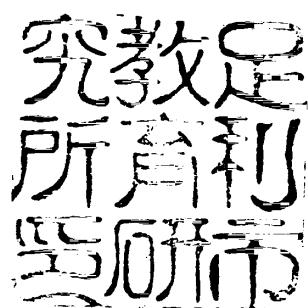 足利市
教育研
究所印